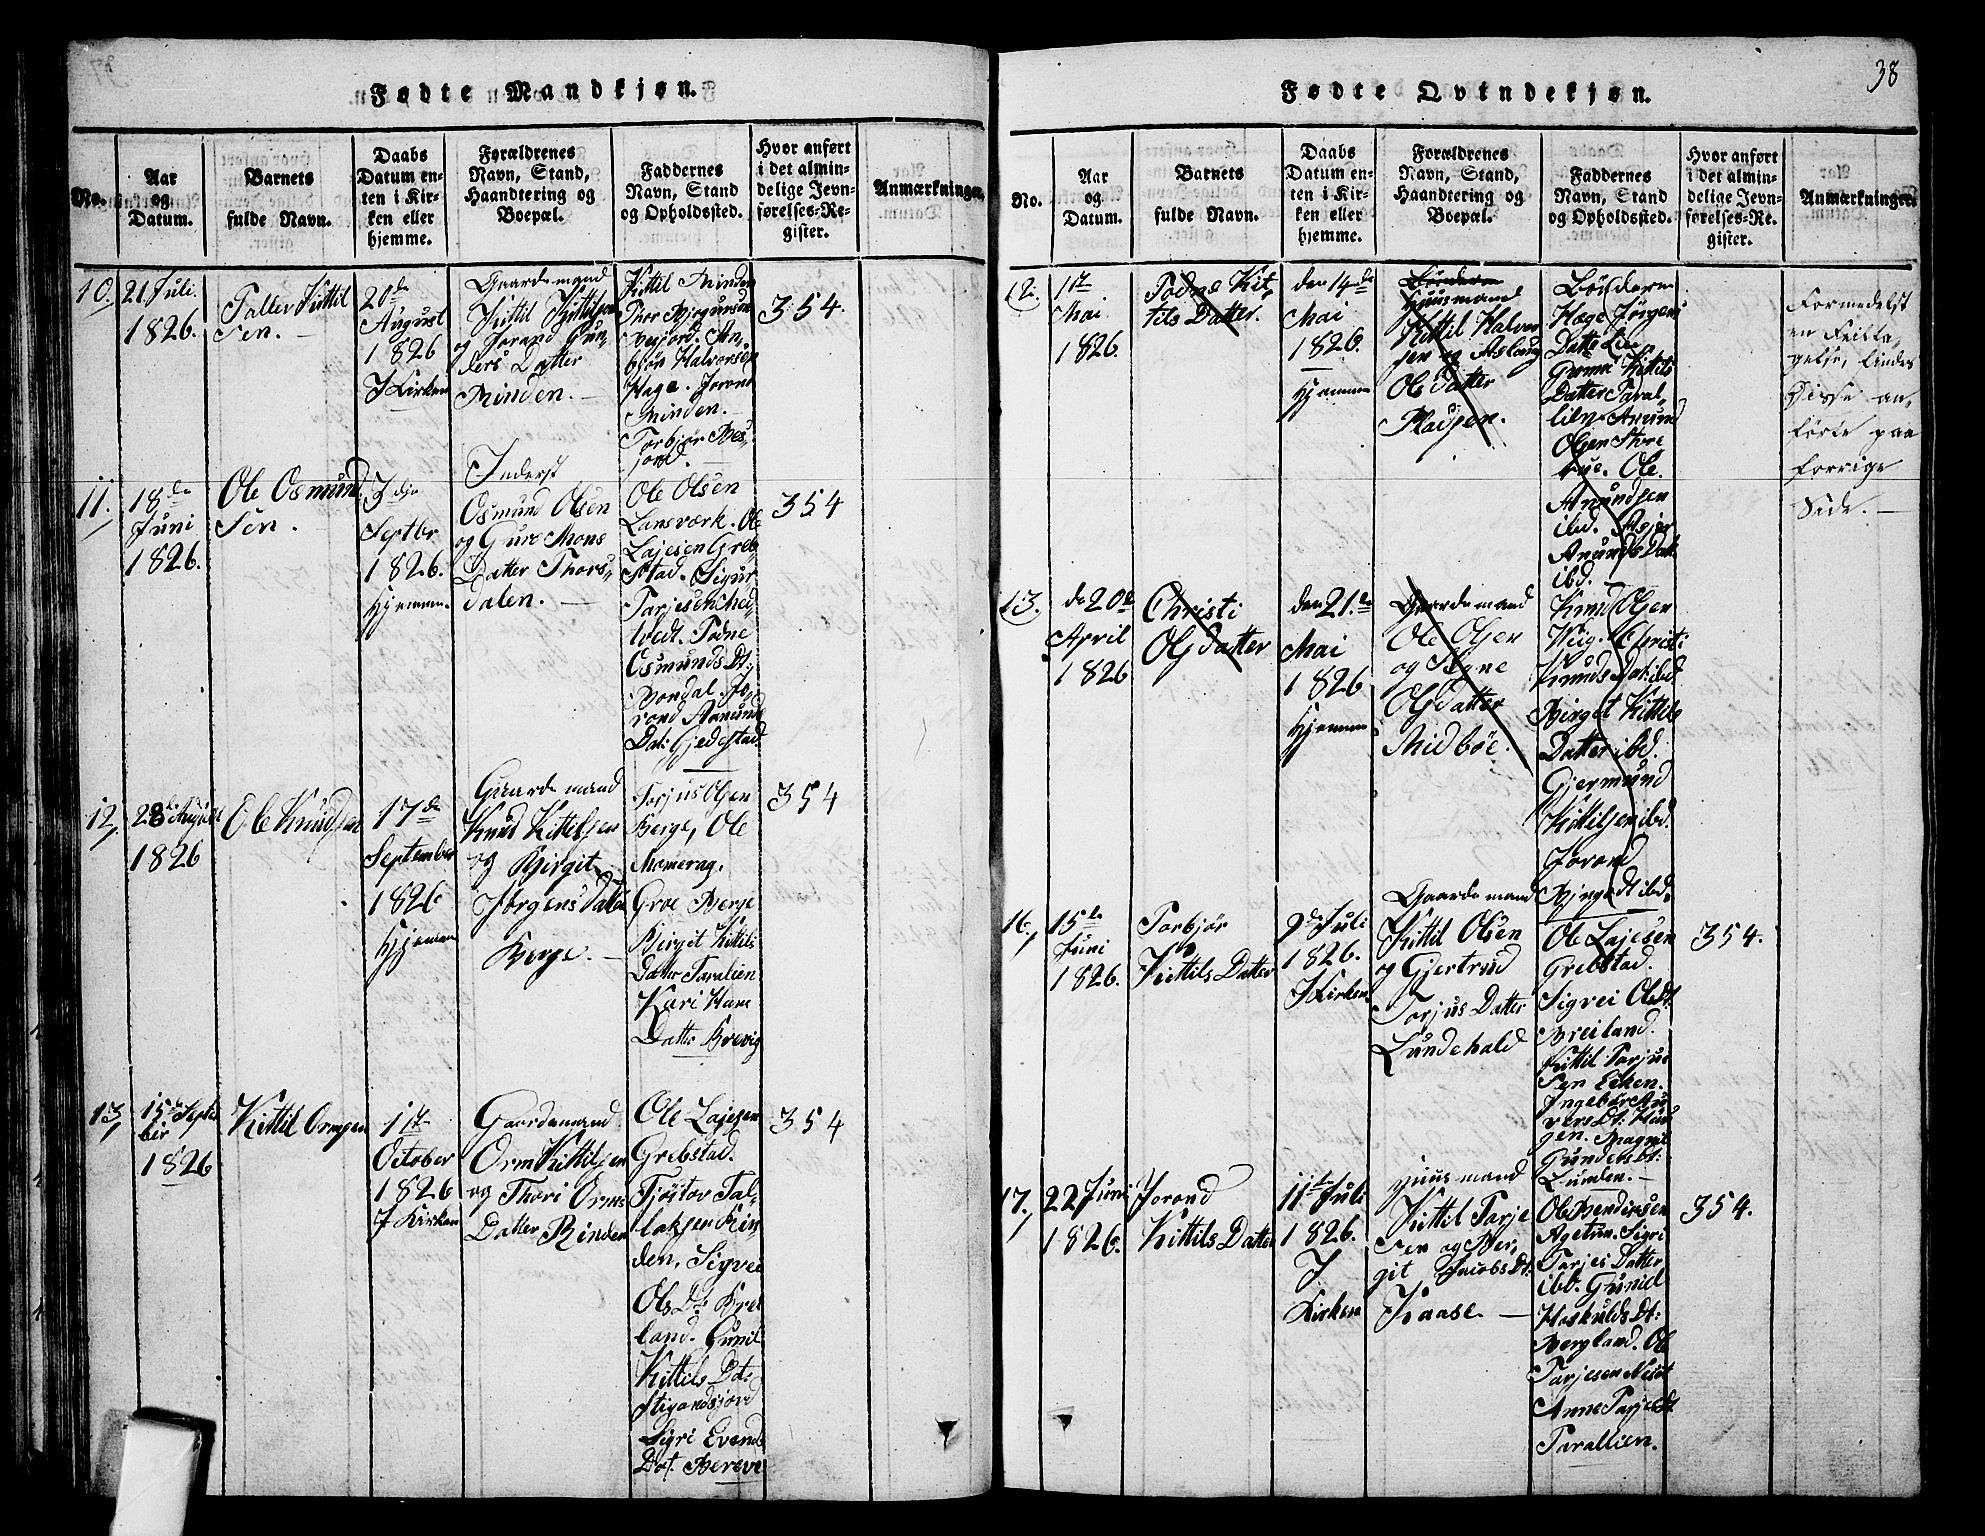 Fødte Mandkjøn.
No.
Aar
og
Datum.
Barnets
fulde Navn.
Daabs
Datum en-
ten i Kir-
ken eller
hjemme.
Forældrenes
Navn, Stand,
Haandtering og
Boepæl.
Faddernes
Navn, Stand
og Opholdssted.
Hvor anført
i det almin-
delige Jevn-
førelses-Re-
gister.
Anmærkninger.
10.
21 Juli.
1826.
Taller Kittil
Sen.
20de
August
1826
I Kirken
Gaardemand
Kittil Kittilsen
og Jorand Gun-
ders Datter
Rinden.
Kittil Rinden
Thor Birgursen
Besjord. An-
björ Halvorsen
Hage. Jorand
Rinden.
Torbjör Bes-
jord.
354.
11.
18de
Juni
1826.
Ole Osmund
Sen.
3die
Septbr
1826.
Hjemme.
Inderst
Osmund Olsen
og Guro Mons
Datter Thors-
dalen.
Ole Olsen
Lansverk. Ole
Lajesen Greb-
stad. Sigur
Tarjesen Hed-
tvedt. Todne
Osmunds Dt:
Nordal. Jo-
rand Aanund
Dat: Gjedestad.
354
12,
28de August
1826
Ole Knudsen
17de
September
1826
Hjemme
Gaardemand
Knud Kittilsen
og Birgit
Jörgens Datter
Berge.
Torjus Olsen
Berge, Ole
Momerag.
Groe Berge
Birgit Kittils
Datter Taralien
Kari Hans
Datter Brevig
354
13,
15de Septem
ber
1826
Kittil Ormsen
1ste
October
1826
I Kirken
Gaardemand
Orm Kittilsen
og Thori Orms
Datter Rinden
Ole Lajesen
Grebstad.
Tjöstov Tal-
laksen Rin-
den, Sigvei
Ols Dt: Brei
land. Gunil
Kittils Dt:
Stigandsjord
Sigri Evends
Dat. Bereve
354
38
Fødte Qvindekjøn.
No.
Aar
og
Datum.
Barnets
fulde Navn.
Daabs
Datum en-
ten i Kir-
ken eller
hjemme.
Forældrenes
Navn, Stand,
Haandtering og
Boepæl.
Faddernes
Navn, Stand
og Opholdssted.
Hvor anført
i det almin-
delige Jevn-
førelses-Re-
gister.
Anmærkninger.
12.
1ste
Mai
1826.
Todne Kit-
tils Datter.
den 14de
Mai
1826.
Hjemme
Bonden
Huusmand
Kittil Halvor
sen og Aslaug
Ole Datter
Pladsen.
Bönderne
Hæge Jörgens
Datter Lien
Gunne Kittils
Datter Taral-
lien Anund
Olsen Store
bye. Ole
Anundsen
ibd. Asjer
Anunds Datt
ibd.
Formedelst
en Feilta-
gelse, findes
Disse an-
förte paa
forrige
Side.
13.
de 20de
April
1826
Christi
Ols Datter
den 21de
Mai
1826
Hjemme
Gaardemand
Ole Olsen
og Signe
Ols Datter
Midböe.
Knud Olsen
Wiig. Christi
Knuds Dat: ibd
Birget Kittils
Datter ibd.
Gjermund
Kittilsen ibd.
Jorand
Birges Dt ibd.
16.
15de
Juni
1826.
Torbjör
Kittils Datter
9de Juli
1826.
I Kirken
Gaardemand
Kittil Olsen
og Gjertrud
Torjus Datter
Lundehald
Ole Lajesen
Grebstad.
Sigvei Ole Dt:
Breiland.
Kittil Tarju
Sen Eiken.
Ingebör Au
vers Dt: Huu
sen. Magnil
Gunders Dt:
Lunden.
354.
17.
22 Juni
1826.
Jorand
Kittils Datter
11te Juli
1826.
I
Kirken
Huusmand
Kittil Tarje
sen og Ber-
git Jacobs Dt:
Kaase.
Ole Bendixsen
Agetun. Sigri
Tarjes Datter
ibd. Guniel
Hoskulds Dt:
Bergland. Ole
Tarjesen Neset
Anne Tarjes Dt
Tarallien.
354.